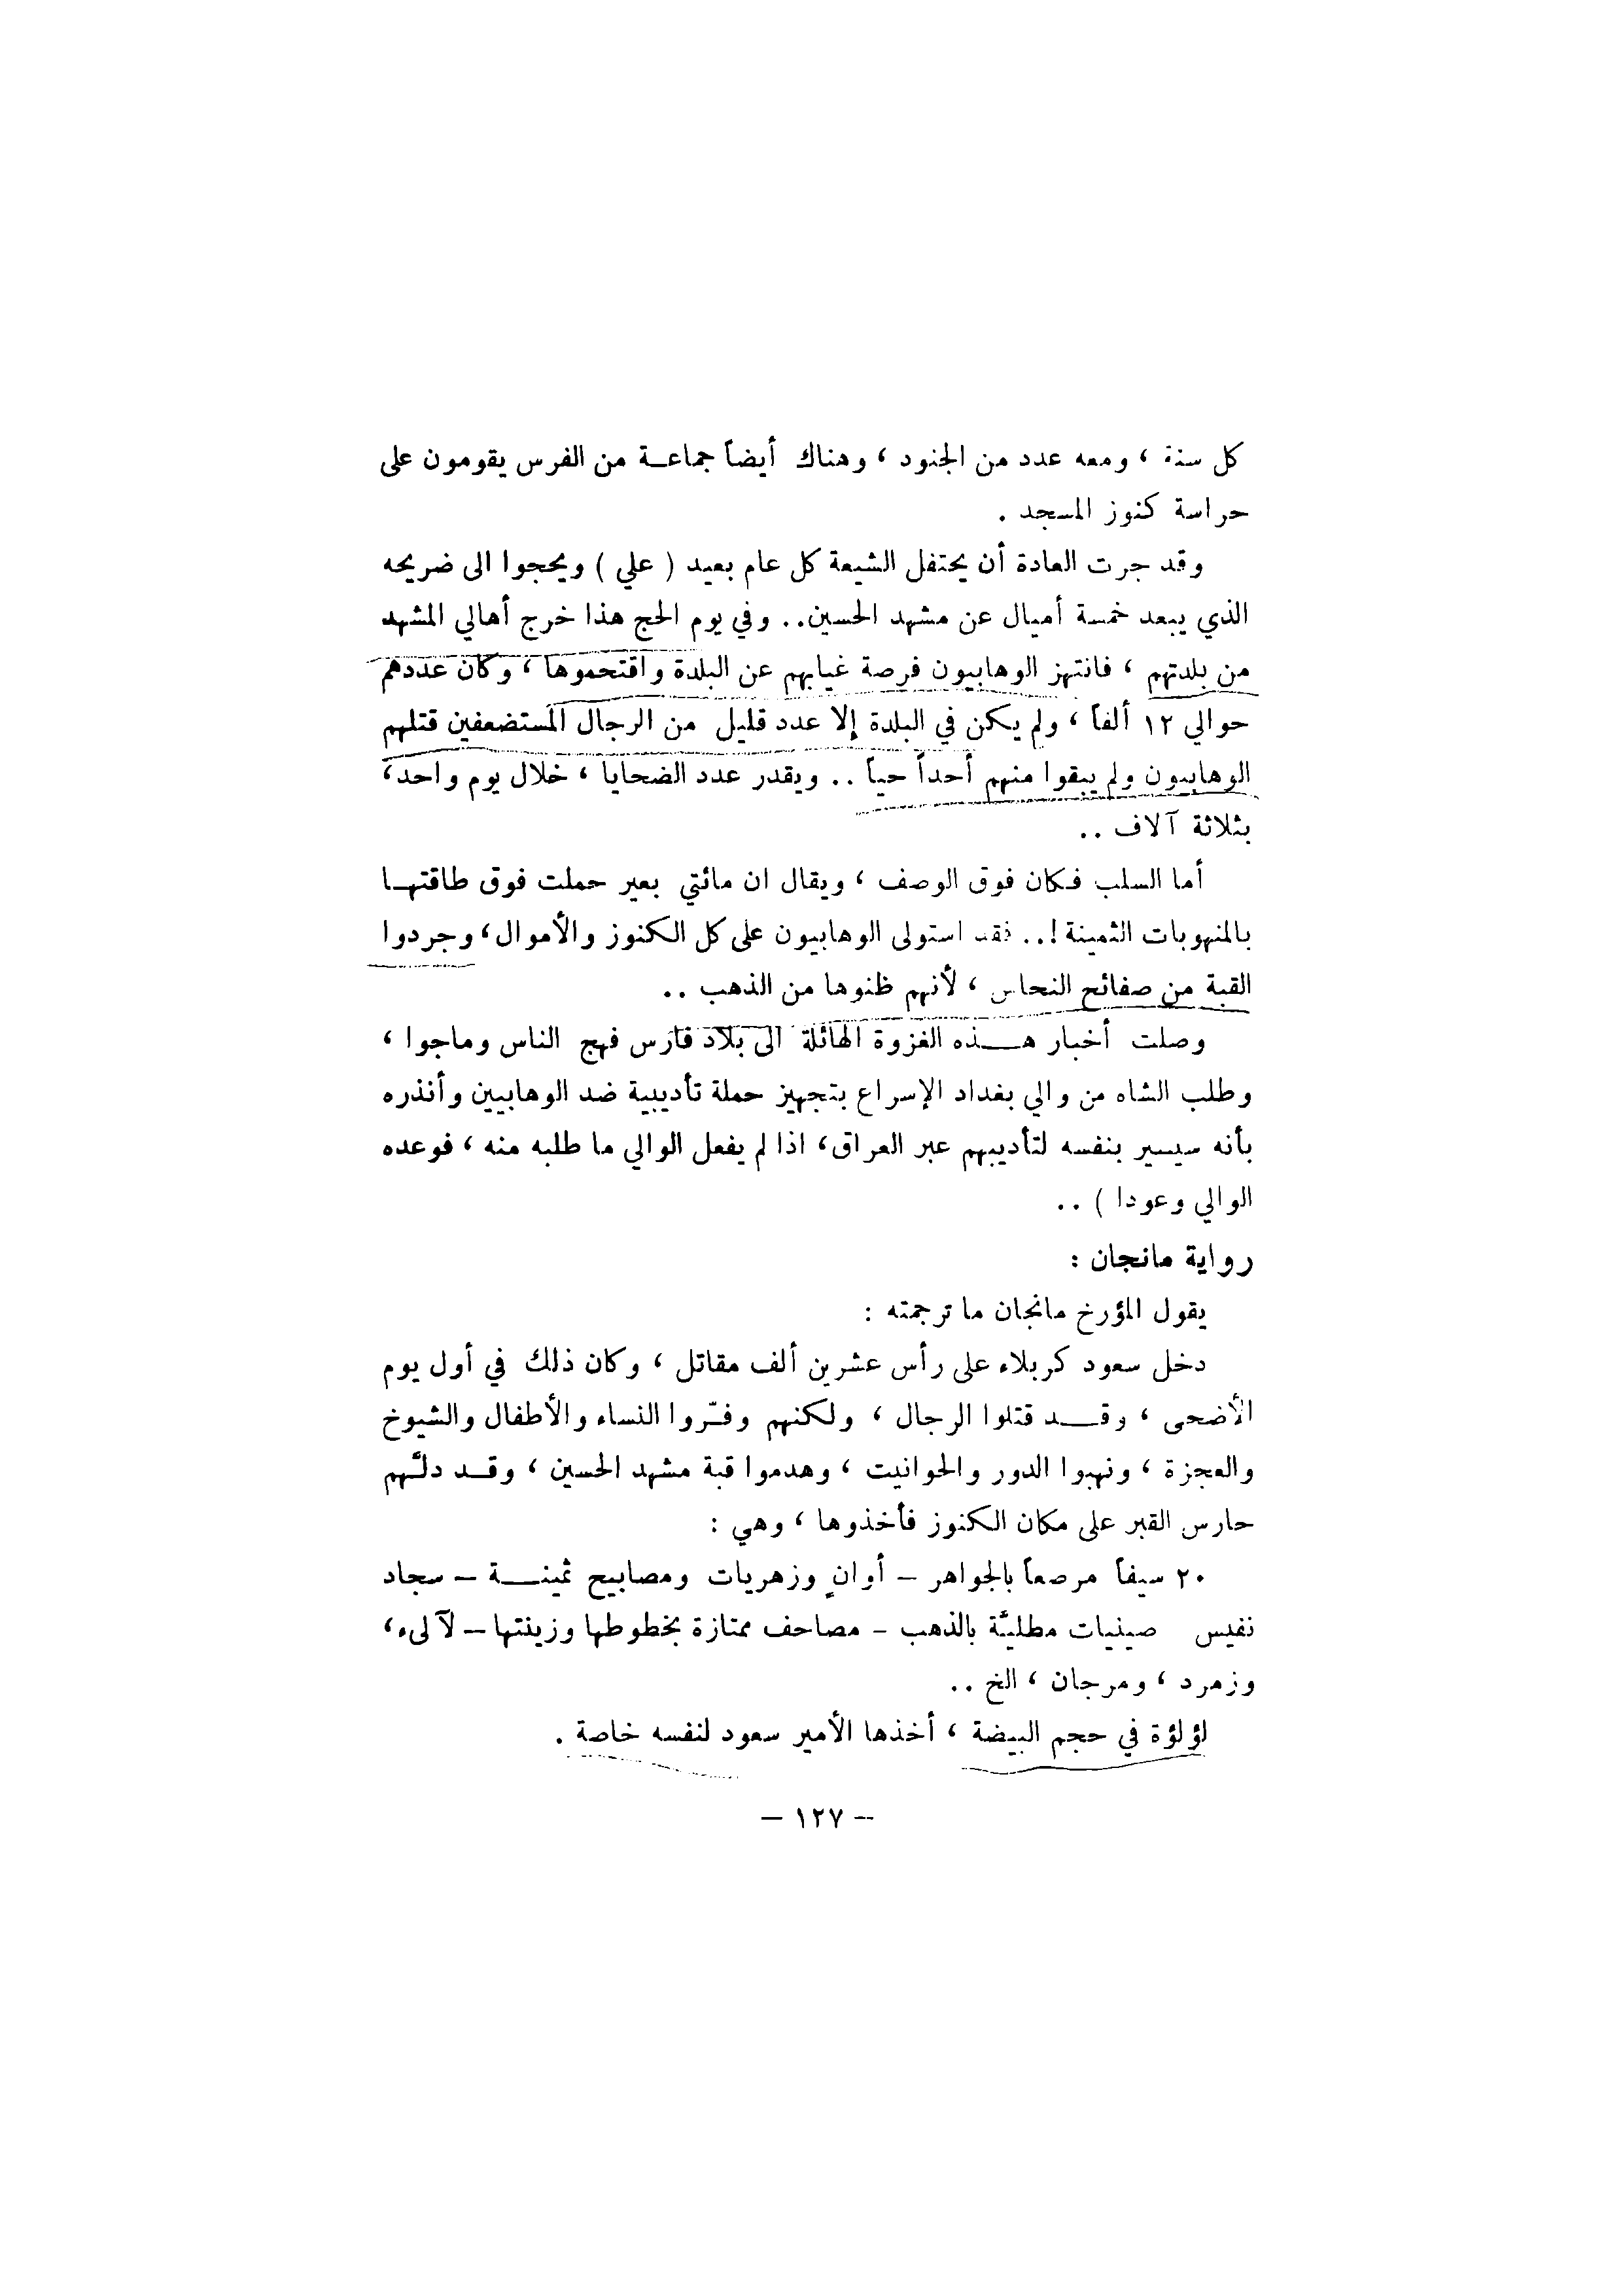 كل سنة ، ومعه عدد من الجنود ، وهناك أيضاً جماعة من الفرس يقومون على
حراسة كنوز المسجد .
وقد جرت العادة أن يحتفل الشيعة كل عام بعيد ( علي ) ويحجوا الى ضريحه
الذي يبعد خمسة أميال عن مشهد الحسين.. وفي يوم الحج هذا خرج أهالي المشهد
من بلدتهم ، فانتهز الوهابيون فرصة غيابهم عن البلدة واقتحموها ، وكان عددهم
حوالي ١٢ ألفاً ، ولم يكن في البلدة إلا عدد قليل من الرجال المستضعفين قتلهم
الوهابيون ولم يبقوا منهم أحداً حياً .. ويقدر عدد الضحايا ، خلال يوم واحد،
بثلاثة آلاف ..
أما السلب فكان فوق الوصف ، ويقال ان مائتي بعير حملت فوق طاقتها
بالمنهوبات الثمينة !.. فقد استولى الوهابيون على كل الكنوز والأموال، وجردوا
القبة من صفائح النحاس ، لأنهم ظنوها من الذهب ..
وصلت أخبار هذه الغزوة الهائلة الى بلاد فارس فهج الناس وماجوا ،
وطلب الشاه من والي بغداد الإسراع بتجهيز حملة تأديبية ضد الوهابيين وأنذره
بأنه سيسير بنفسه لتأديبهم عبر العراق، اذا لم يفعل الوالي ما طلبه منه ، فوعده
الوالي وعودا ) ..
رواية مانجان :
يقول المؤرخ مانجان ما ترجمته :
دخل سعود كربلاء على رأس عشرين ألف مقاتل ، وكان ذلك في أول يوم
الأضحى ، وقد قتلوا الرجال ، ولكنهم وفّروا النساء والأطفال والشيوخ
والعجزة ، ونهبوا الدور والحوانيت ، وهدموا قبة مشهد الحسين ، وقد دلّهم
حارس القبر على مكان الكنوز فأخذوها ، وهي :
٢٠ سيفاً مرصعاً بالجواهر – أوانٍ وزهريات ومصابيح ثمينة – سجاد
نفيس صينيات مطليّة بالذهب – مصاحف ممتازة بخطوطها وزينتها – لآلىء،
وزمرد ، ومرجان ، الخ ..
لؤلؤة في حجم البيضة ، أخذها الأمير سعود لنفسه خاصة .
– ١٢٧ –